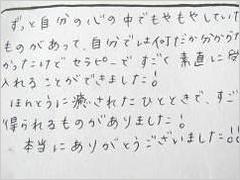 ずっと自分の心の中でもやもやしていた
ものがあって、自分では何だか分からな
かったけどセラピーですごく素直に受け
入れることができました!
ほんとうに癒されたひとときで、すご
得られるものがありました!
本当にありがとうございました!!